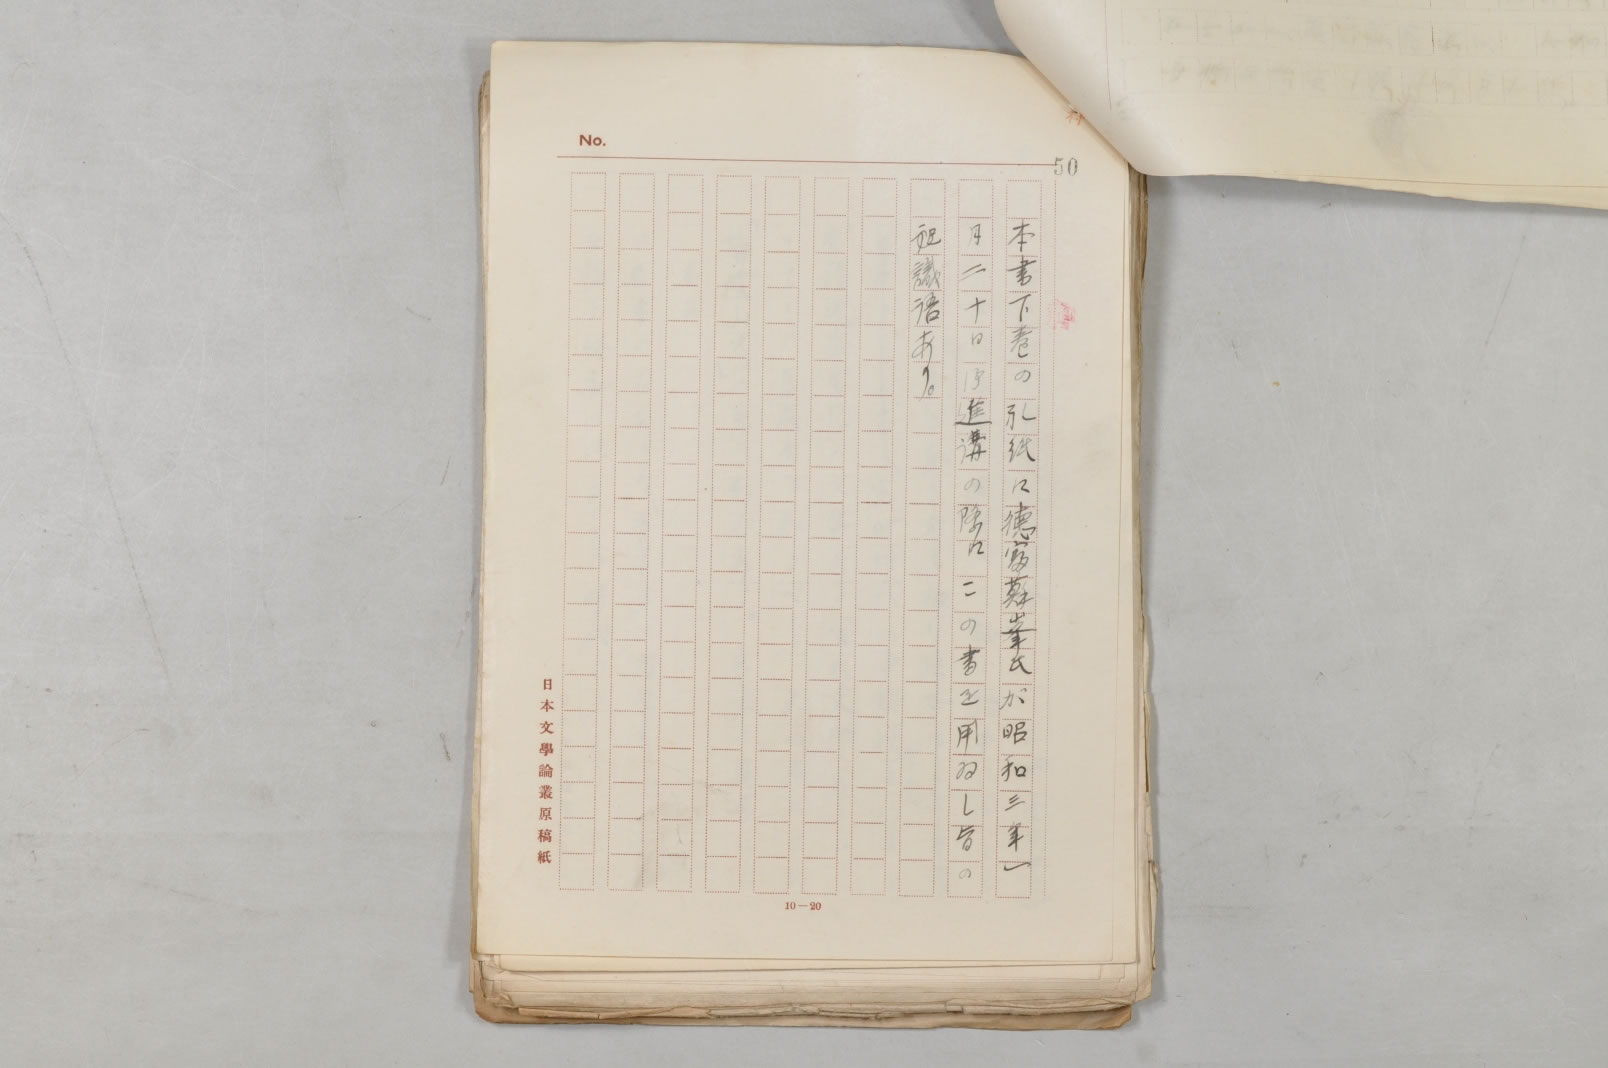 No.
50
本書下巻の扎紙に徳富蘇峯氏が昭和三年一
月二十日御進講の際にこの書を用ゐし旨の
記識語あり。
日本文學論叢原稿紙
10—20